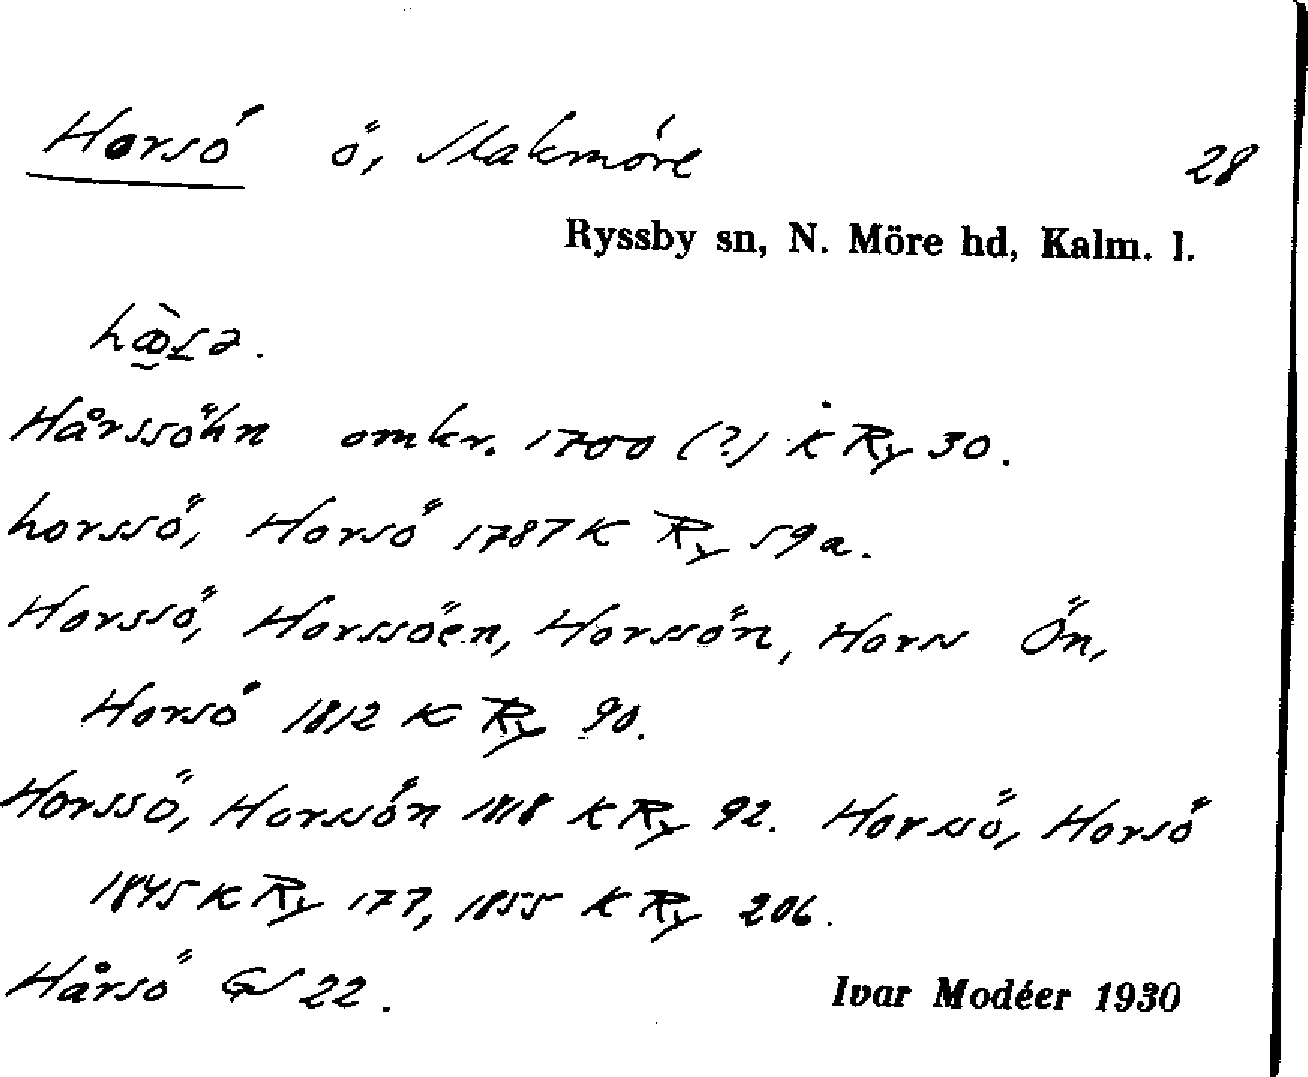 Horsö ö, Slakmöre 28
Ryssby sn, N. Möre hd, Kalm. l.
Hårssöhn omkr. 1700 (?) K Ry 30.
horssö, Horsö 1787 K Ry 59a.
Horssö, Horssöen, Horssön, Horss Ön,
Horsö 1812 K Ry 90.
Horssö, Horssön 1818 K Ry 92. Horssö, Horsö
1845 K Ry 177, 1855 K Ry 206.
Hårsö GS 22. Ivar Modéer 1930